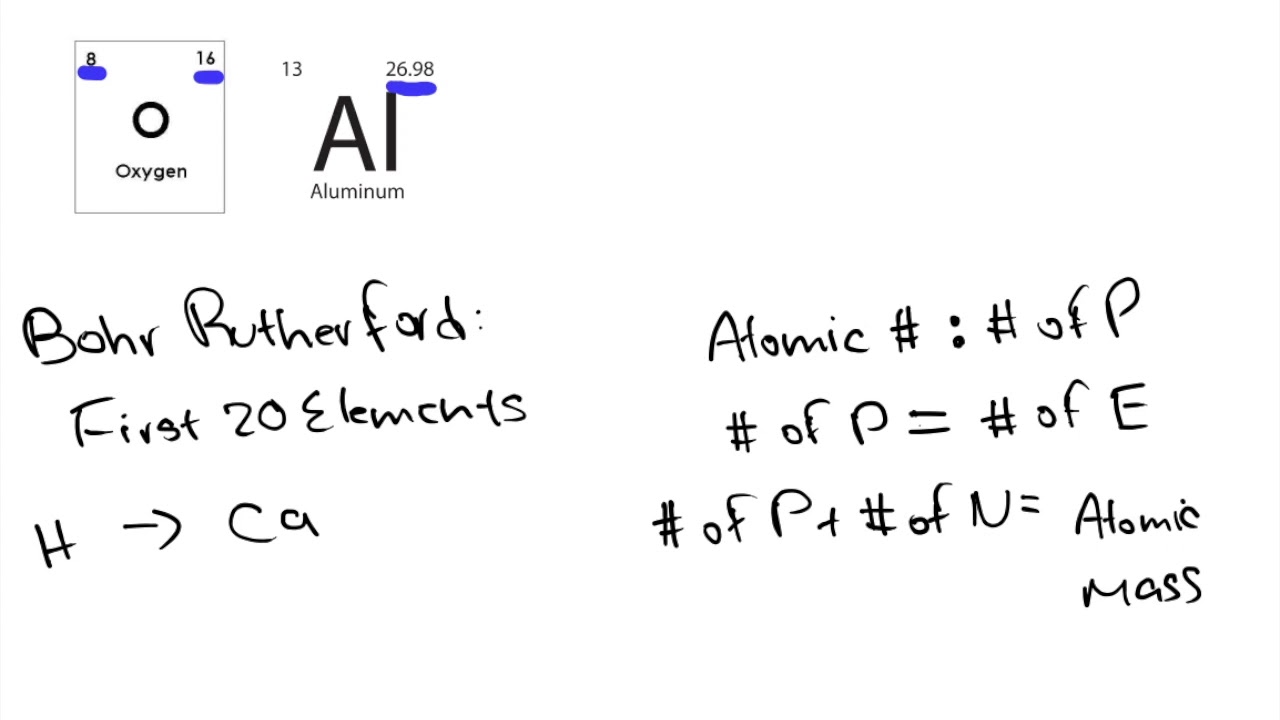 8 16
O
Oxygen
13 26.98
Al
Aluminum
Bohr Rutherford:
First 20 Elements
H → Ca
Atomic # : # of P
# of P = # of E
# of P + # of N = Atomic
Mass